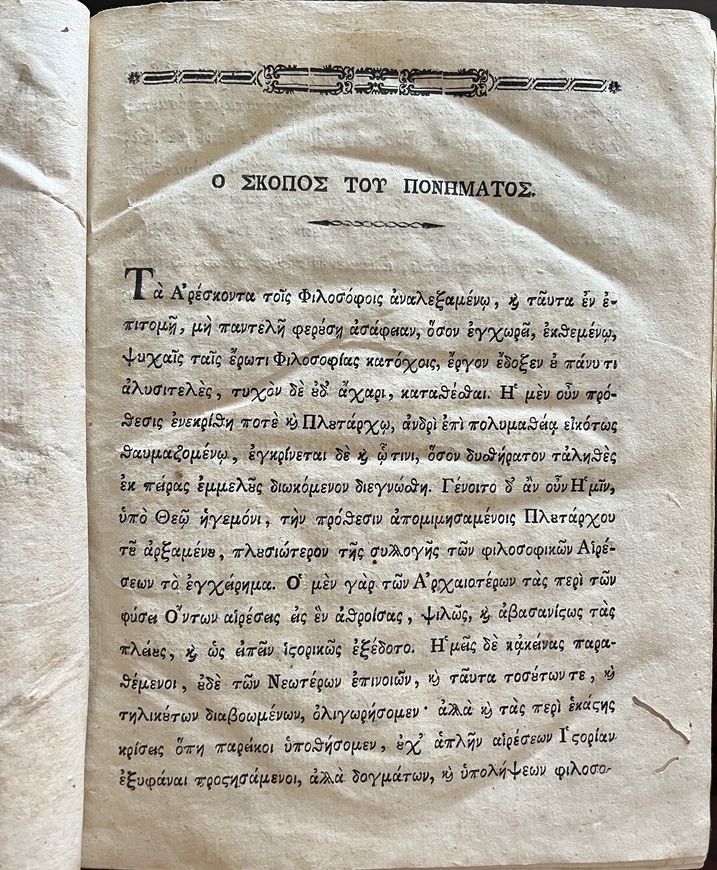 Ο ΣΚΟΠΟΣ ΤΟΥ ΠΟΝΗΜΑΤΟΣ.
Τὰ Ἀρέσκοντα τοῖς Φιλοσόφοις ἀναλεξαμένῳ, ϗ ταῦτα ἐν ἐ-
πιτομῇ, μὴ παντελῆ φερέσῃ ἀσάφειαν, ὅσον ἐγχωρεῖ, ἐκθεμένῳ,
ψυχαῖς ταῖς ἔρωτι Φιλοσοφίας κατόχοις, ἔργον ἔδοξεν ȣ̓ πάνυ τι
ἀλυσιτελὲς, τυχὸν δὲ ȣ̓δ' ἄχαρι, καταθέσθαι. Ἡ μὲν οὖν πρό-
θεσις ἐνεκρίθη ποτὲ ϗ Πλȣτάρχῳ, ἀνδρὶ ἐπὶ πολυμαθείᾳ εἰκότως
θαυμαζομένῳ, ἐγκρίνεται δὲ ϗ ᾧ τινι, ὅσον δυσθήρατον τἀληθὲς
ἐκ πείρας ἐμμελȣ͂ς διωκόμενον διεγνώσθη. Γένοιτο δ' ἂν οὖν Ἡμῖν,
ὑπὸ Θεῷ ἡγεμόνι, τὴν πρόθεσιν ἀπομιμησαμένοις Πλȣτάρχου
τȣ͂ ἀρξαμένȣ, πλȣσιώτερον τῆς συλλογῆς τῶν φιλοσοφικῶν Αἱρέ-
σεων τὸ ἐγχείρημα. Ὁ μὲν γὰρ τῶν Ἀρχαιοτέρων τὰς περὶ τῶν
φύσει Ὄντων αἱρέσεις εἰς ἓν ἀθροίσας, ψιλῶς, ϗ ἀβασανίϛως τὰς
πλείȣς, ϗ ὡς εἰπεῖν ἱϛορικῶς ἐξέδοτο. Ἡμεῖς δὲ κἀκείνας παρα-
θέμενοι, ȣ̓δὲ τῶν Νεωτέρων ἐπινοιῶν, ϗ ταῦτα τοσȣ́των τε, ϗ
τηλικȣ́των διαβοωμένων, ὀλιγωρήσομεν· ἀλλὰ ϗ τὰς περὶ ἑκάϛης
κρίσεις ὅπη παρείκοι ὑποθήσομεν, ȣ̓χ' ἁπλῆν αἱρέσεων Ἱϛορίαν
ἐξυφάναι προϛησάμενοι, ἀλλὰ δογμάτων, ϗ ὑπολήψεων φιλοσο-